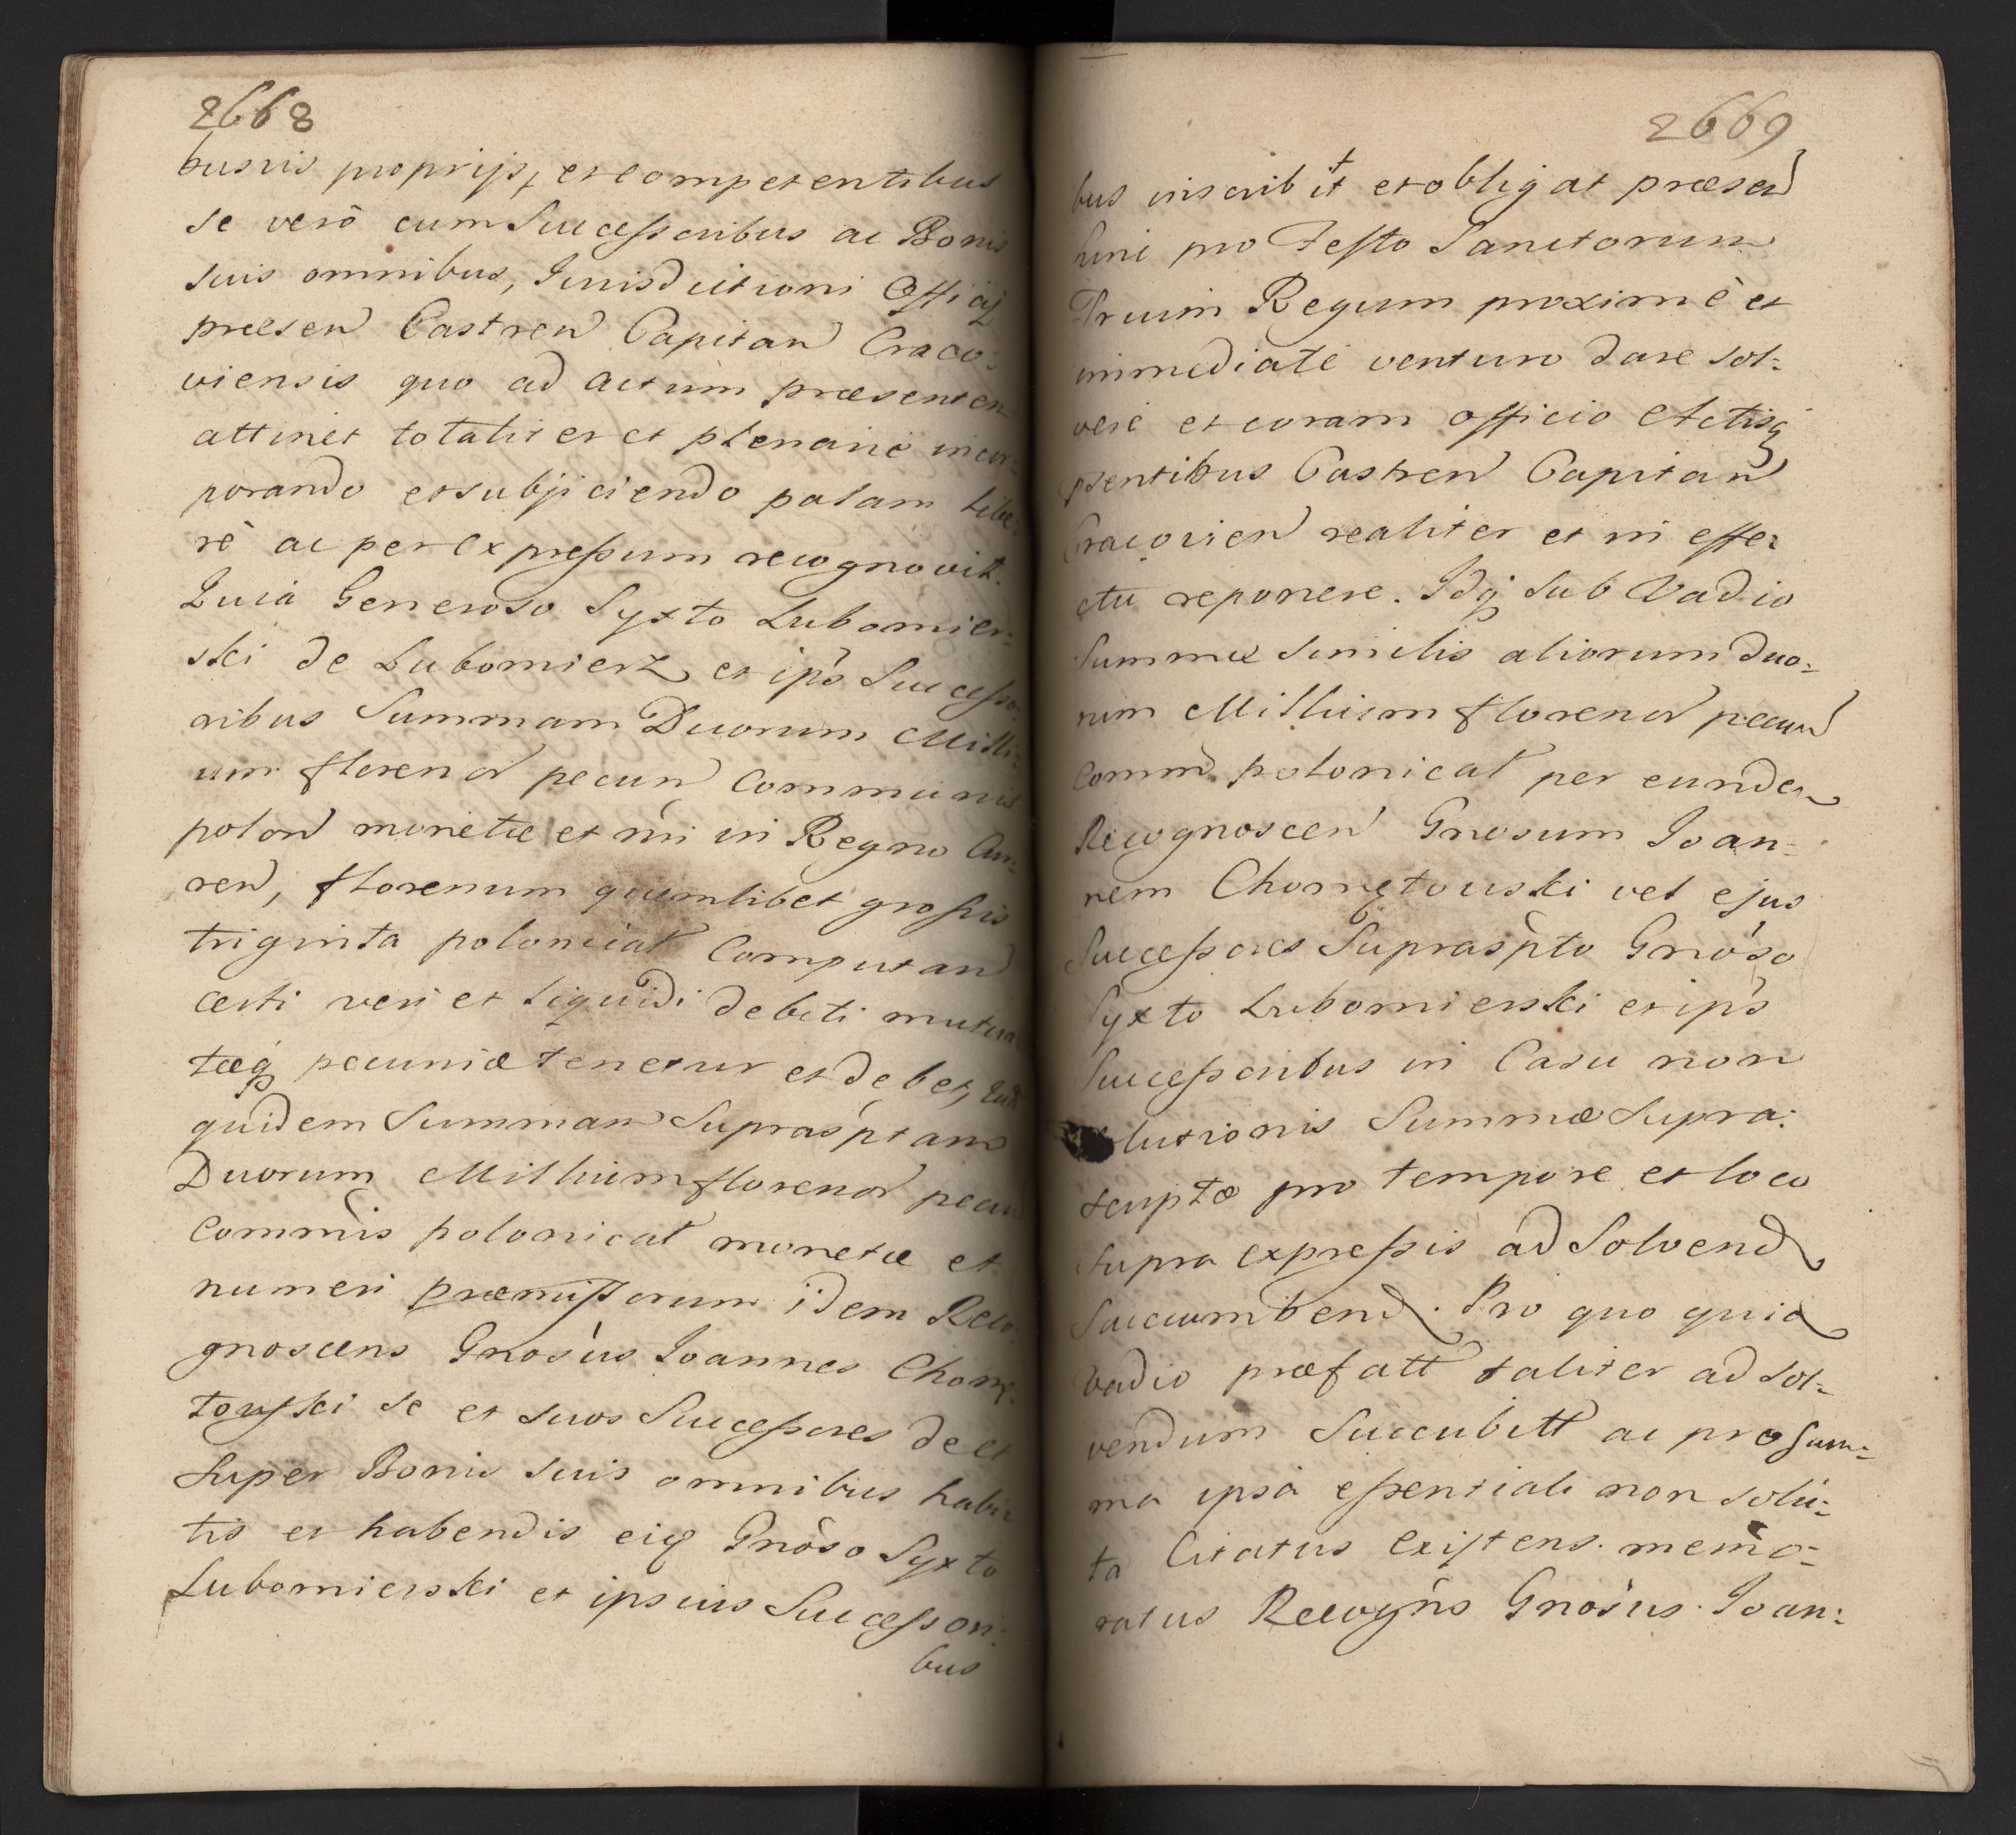 2668
busvis proprijs, et competentibus
se verò cum Successoribus ac Bonis
suis omnibus, Jurisdictioni Officij
præsen Castren Capitan Craco:
viensis quo ad actum præsentem
attinet totaliter et plenariè incor:
porando et subjiciendo palam libe:
rè ac per expressum recognovit.
Quia Generoso Syxto Lubomier:
ski de Lubomierz et ip̃s Successo:
ribus Summam Duorum Milli:
um floren̄ pecun Communis
polon monetæ et nri in Regno Cur:
ren, florenum quemlibet grossis
triginta polonical Computan
certi veri et liquidi debiti mutua
tæq pecuniæ tenetur et debet,
quidem Summam Suprasptam
Duorum Millium floren pecun
Commis polonical monetæ et
numeri præmissorum idem Reco:
gnoscens Gnosus Joannes Chomę:
towski se et suos Successores de et
super Bonis suis omnibus habi:
tis et habendis eiq Gnoso Syxto
Lubomierski et ipsius Successori:
bus
2669
bus inscribit et obligat præsen
huni pro Festo Sanctorum
Trium Regum proximè et
immediatè venturo dare sol:
vere et coram officio Actisq
psentibus Castren Capitan
Cracovien realiter et in effe:
ctu reponere. Idq sub Vadio
Summæ similis aliorum duo:
rum Millium floren pecun
Comm polonical per eundem
Recognoscen Gnosum Joan:
nem Chomętowski vel ejus
Successores Supraspto Gnoso
Syxto Lubomierski et ips
Successoribus in Casu non
solutionis Summæ Supra:
scriptæ pro tempore et loco
supra expressis ad Solvend
Succumbend. Pro quo quid
vadio præfatt taliter ad sol:
vendum Succubitt ac pro sum:
ma ipsa essentiali non solu:
ta Citatus existens. memo:
ratus Recogns Gnosus. Joan: